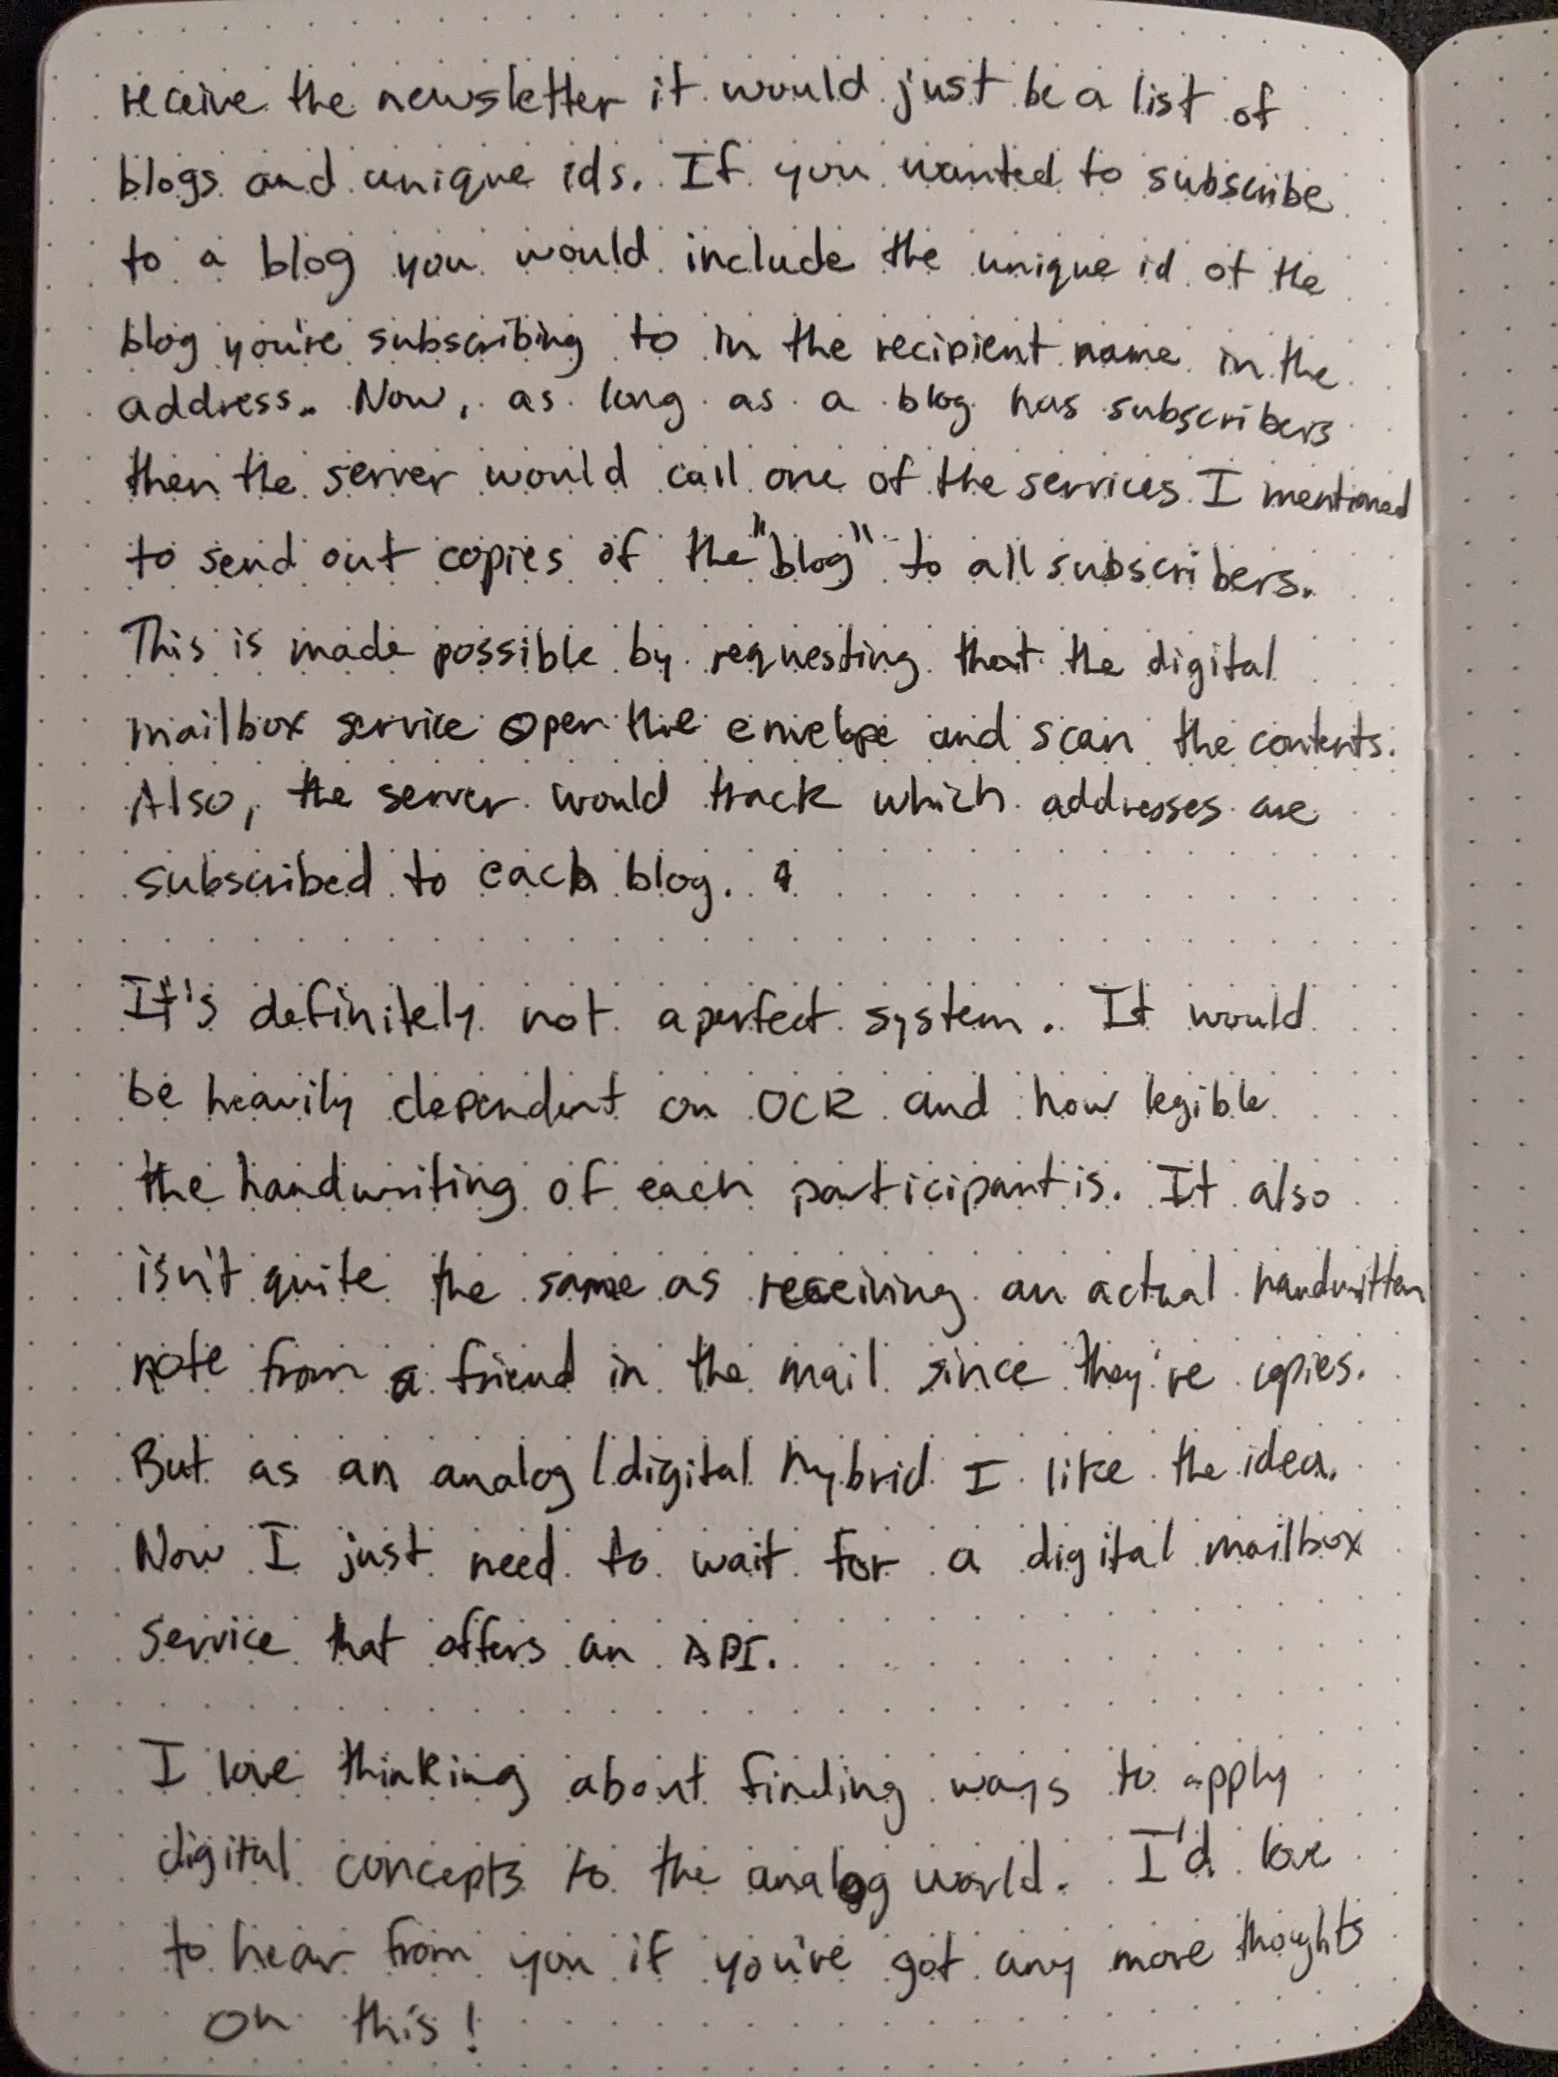 receive the newsletter it would just be a list of
blogs and unique ids. If you wanted to subscribe
to a blog you would include the unique id of the
blog you're subscribing to in the recipient name in the
address. Now, as long as a blog has subscribers
then the server would call one of the services I mentioned
to send out copies of the "blog" to all subscribers.
This is made possible by requesting that the digital
mailbox service open the envelope and scan the contents.
Also, the server would track which addresses are
subscribed to each blog.
It's definitely not a perfect system. It would
be heavily dependent on OCR and how legible
the handwriting of each participant is. It also
isn't quite the same as receiving an actual handwritten
note from a friend in the mail since they're copies.
But as an analog/digital hybrid I like the idea.
Now I just need to wait for a digital mailbox
service that offers an API.
I love thinking about finding ways to apply
digital concepts to the analog world. I'd love
to hear from you if you've got any more thoughts
on this!